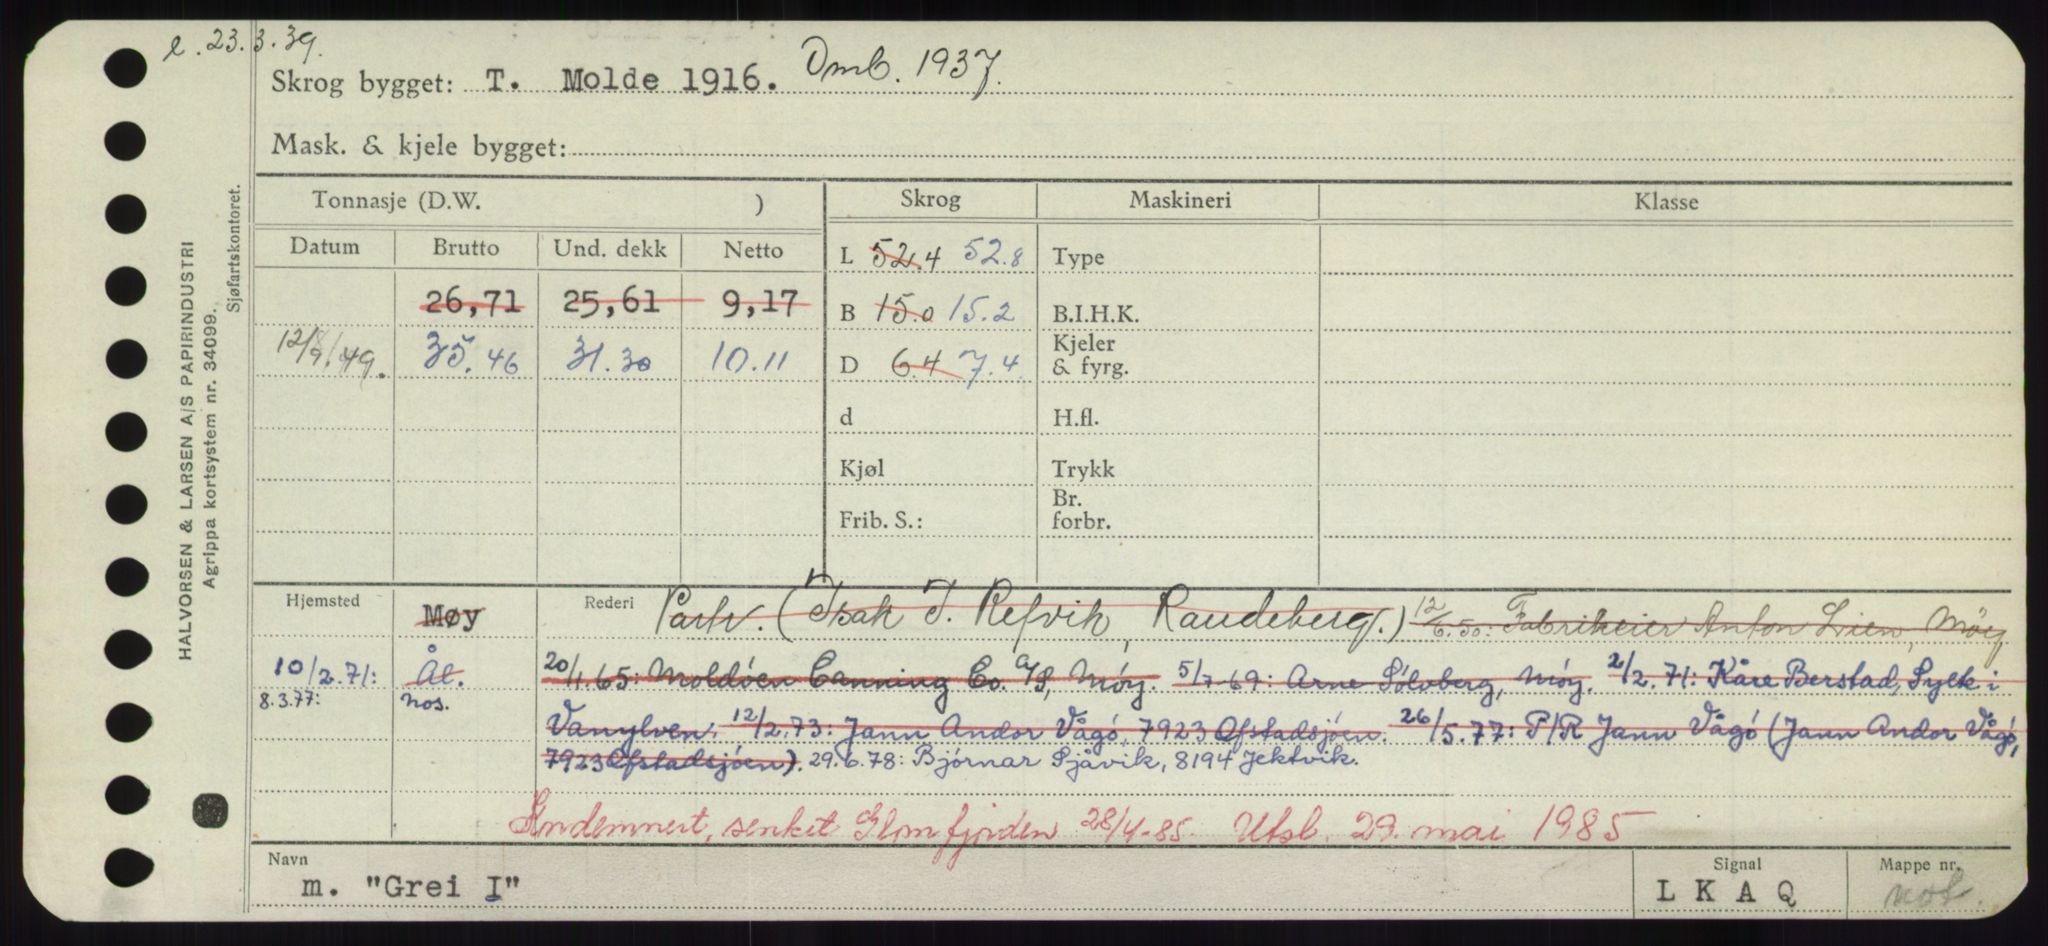 e. 23.3.39.
Skrog bygget: T. Molde 1916. Omb. 1937.
Mask. & kjele bygget:
HALVORSEN & LARSEN A/S PAPIRINDUSTRI
Agrippa kortsystem nr. 34099.
Sjøfartskontoret.
Tonnasje (D.W. ) Skrog Maskineri Klasse
Datum Brutto Und. dekk Netto
L 52.4 52.8 Type
26,71 25,61 9,17
B 15.0 15.2 B.I.H.K.
12/9.49. 35.46 31.30 10.11
D 6.4 7.4 Kjeler & fyrg.
d H.fl.
Kjøl Trykk
Frib. S.: Br. forbr.
Hjemsted Møy Rederi Partr. (Isak T. Refvik, Raudeberg.) 12/6.50: Fabrikeier Anton Lien, Möy
10/2.71: Ål. 20/1.65: Moldöen Canning Co. A/S, Möy. 5/7-69: Arne Sölvberg, Möy. 2/2.71: Kåre Berstad, Sylte i
8.3.77: nos. Vanylven. 12/2.73: Jann Andor Vågö, 7923 Ofstadsjöen. 26/5.77: P/R Jann Vågö (Jann Andor Vågö,
7923 Ofstadsjöen). 29.6.78: Björnar Sjåvik, 8194 Jektvik.
Kondemnert, senket Glomfjorden 28/4-85. Utsl. 29. mai 1985
Navn Signal Mappe nr.
m. "Grei I" L K A Q not.